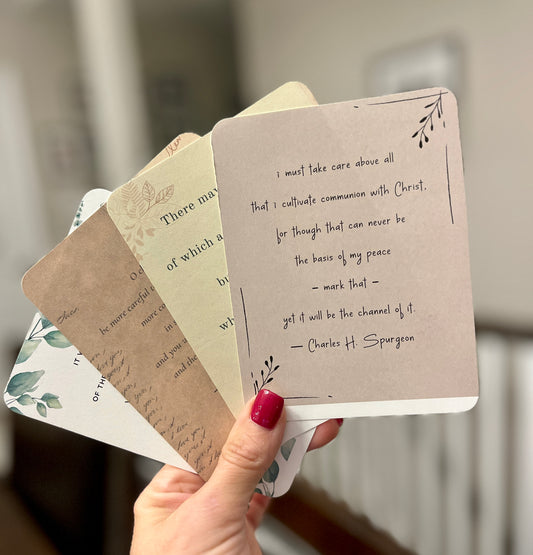 i must take care above all
that i cultivate communion with Christ,
for though that can never be
the basis of my peace
– mark that –
yet it will be the channel of it.
— Charles H. Spurgeon
There may
of which a
bu
wh
O
be more careful
more co
in
and you
and the
IT
OF THE